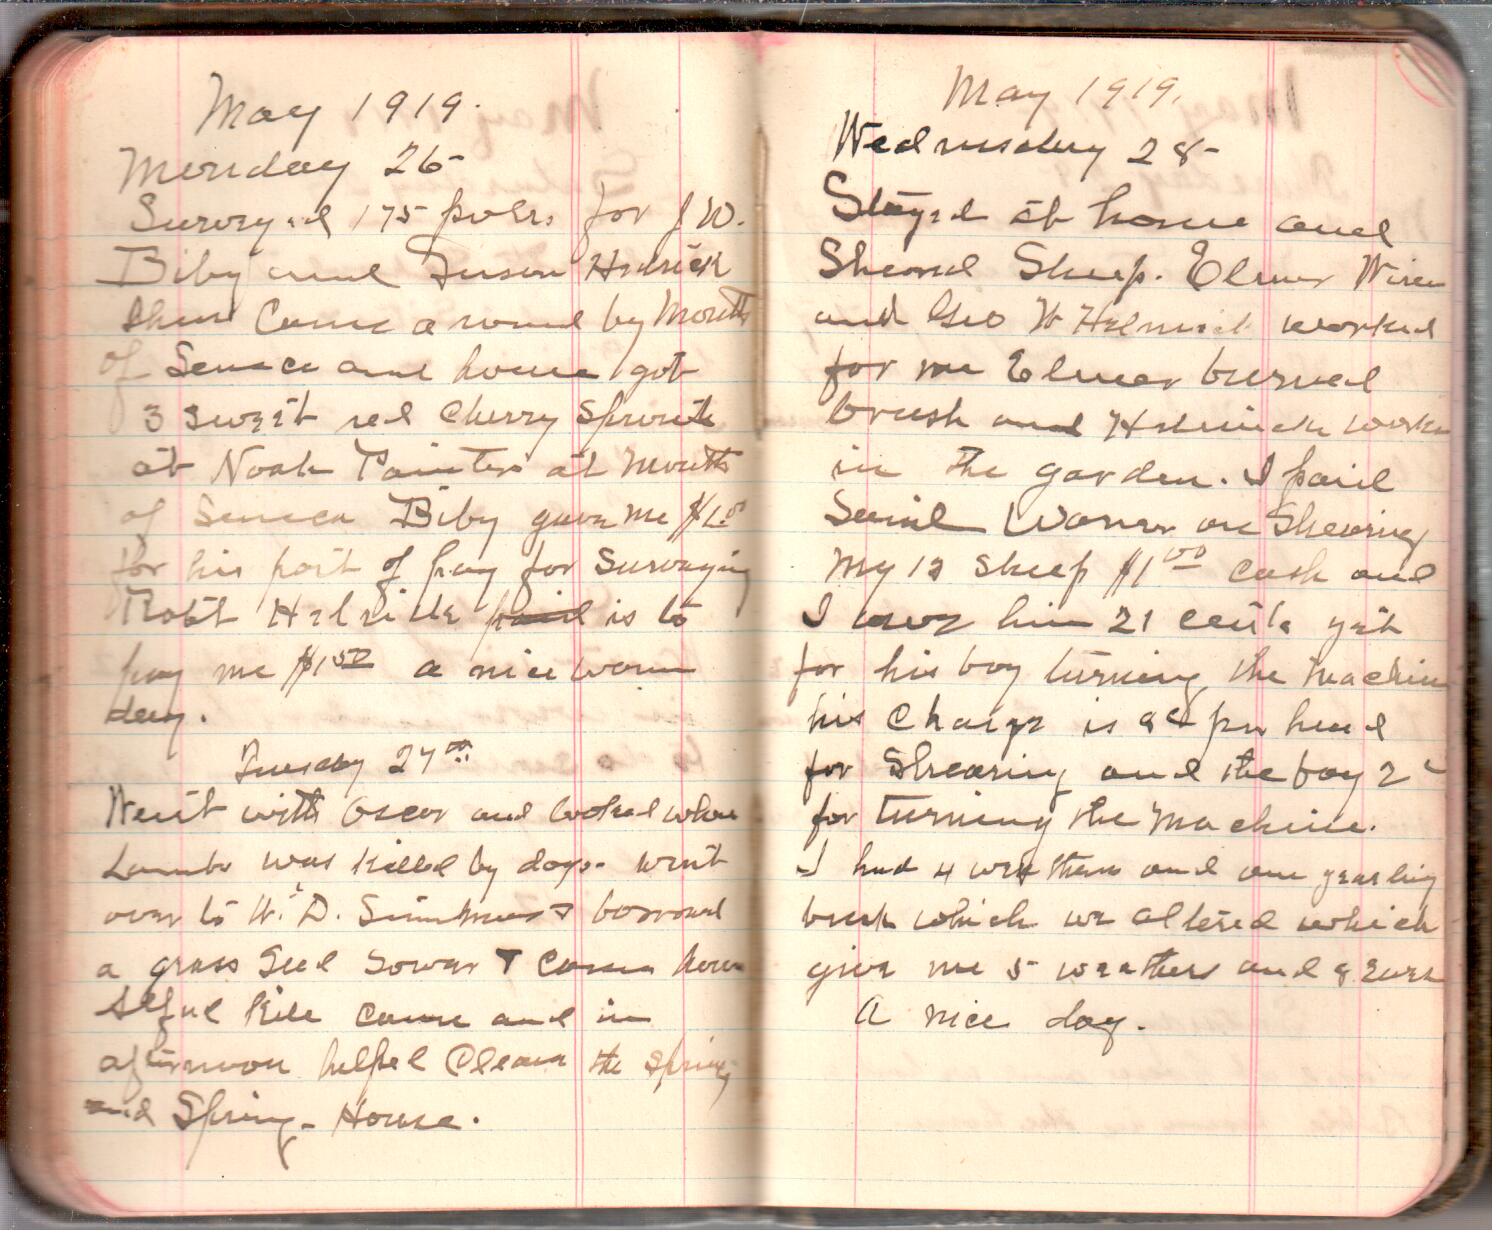 May 1919.
Monday 26-
Surveyed 175 poles for J.W.
Biby and Hedrick
then came a round by Mouth
of Seneca and home got
3 sweet red Cherry Sprouts
at Noah Painters at Mouth
of Seneca Biby gave me $1.50
for his part of pay for Surveying
Robt Hedrick paid is to
pay me $1 50 a nice warm
day.
Tuesday 27th
Went with Oscar and looked where
Lambs was killed by dogs. went
over to W. D. & borrowed
a grass Seed Sower & Came home
Kile came and in
afternoon helped Clean the Spring
and Spring-House.
May 1919.
Wednesday 28-
Stayed at home and
Sheared Sheep. Elmer
and Geo W Helmick worked
for me Elmer burned
brush and Helmick work
in the garden. I paid
Warner on Shearing
My 12 Sheep $1 00 cash and
I owe him 21 cents yet
for his boy turning the Machine
his Charge is 8c per head
for Shearing and the boy 2c
for turning the Machine.
I had 4 wethers and one yearling
buck which we altered which
give me 5 weathers and 8 Ewes
A nice day.